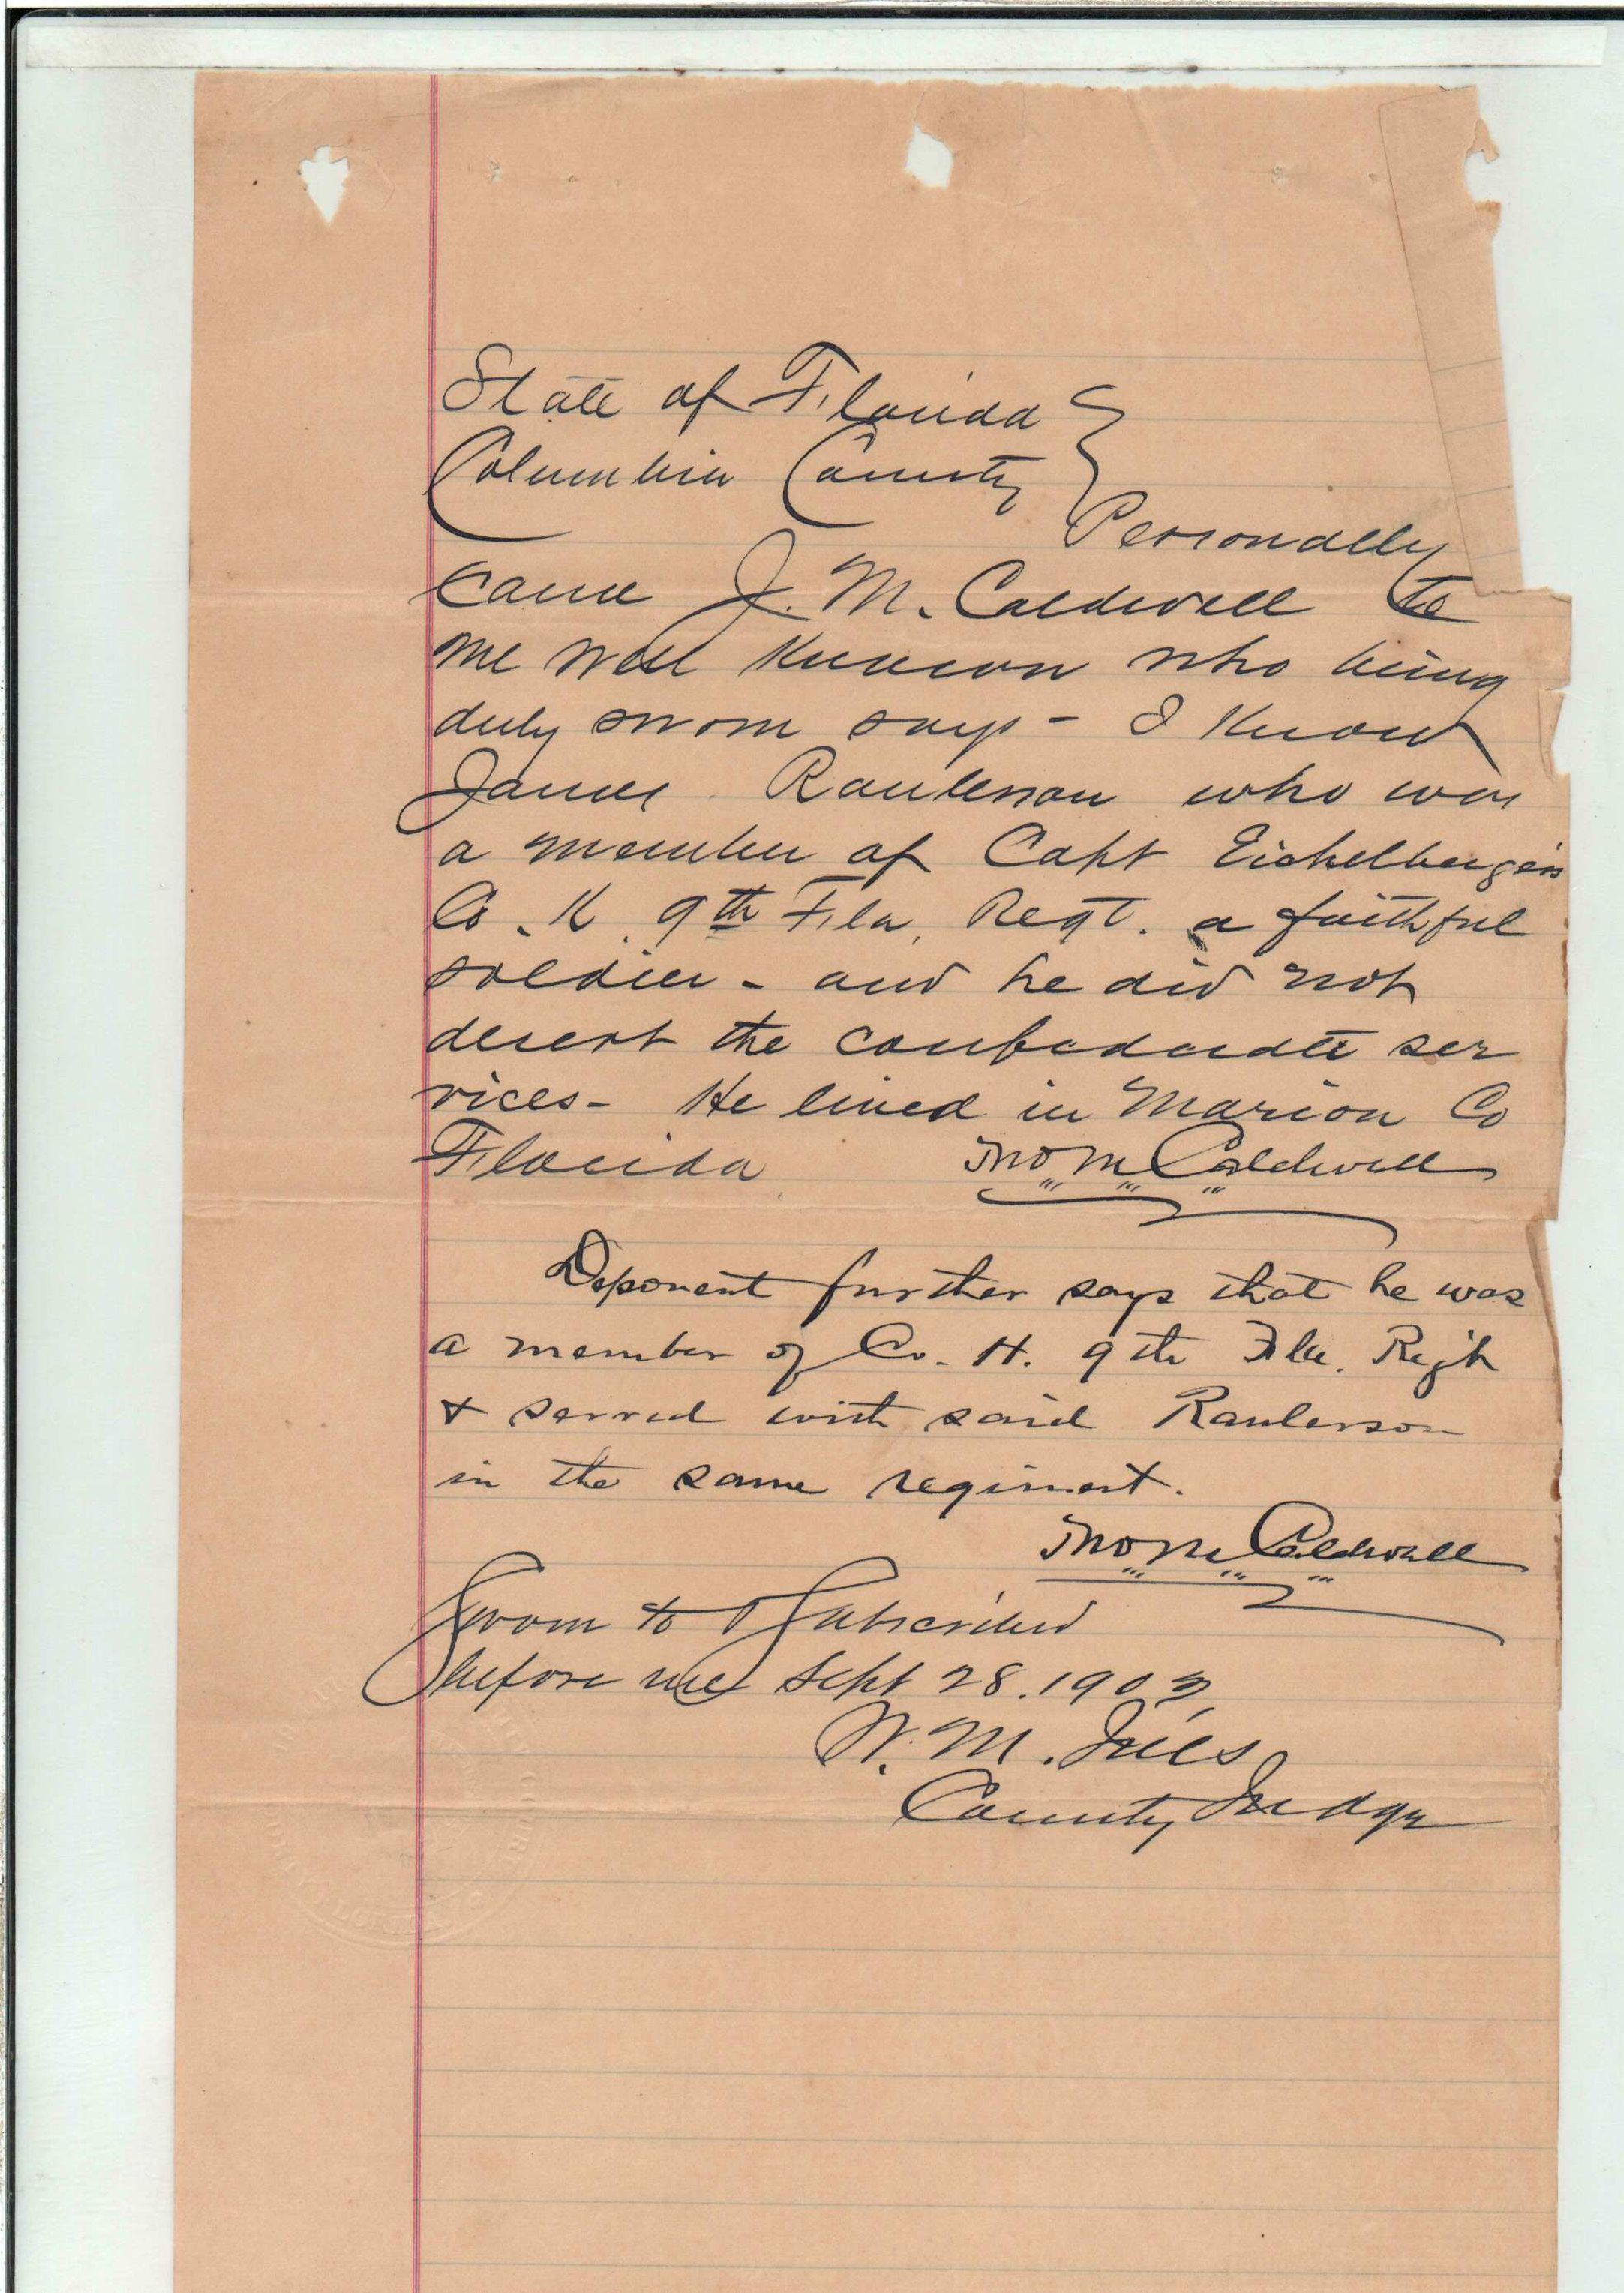 State of Florida }
Columbia County }
Personally
came J. M. Caldwell to
me well known who being
duly sworn says - I know
James Raulerson who was
a member of Capt Eichelberger's
Co. K. 9th Fla. Regt. a faithful
soldier - and he did not
desert the confederate ser
vices - He lived in Marion Co
Florida Jno M Caldwell
Deponent further says that he was
a member of Co. H. 9th Fla. Regt
& served with said Raulerson
in the same regiment.
Jno M Caldwell
Sworn to & Subscribed
before me Sept 28. 1903
W. M. Ives
County Judge